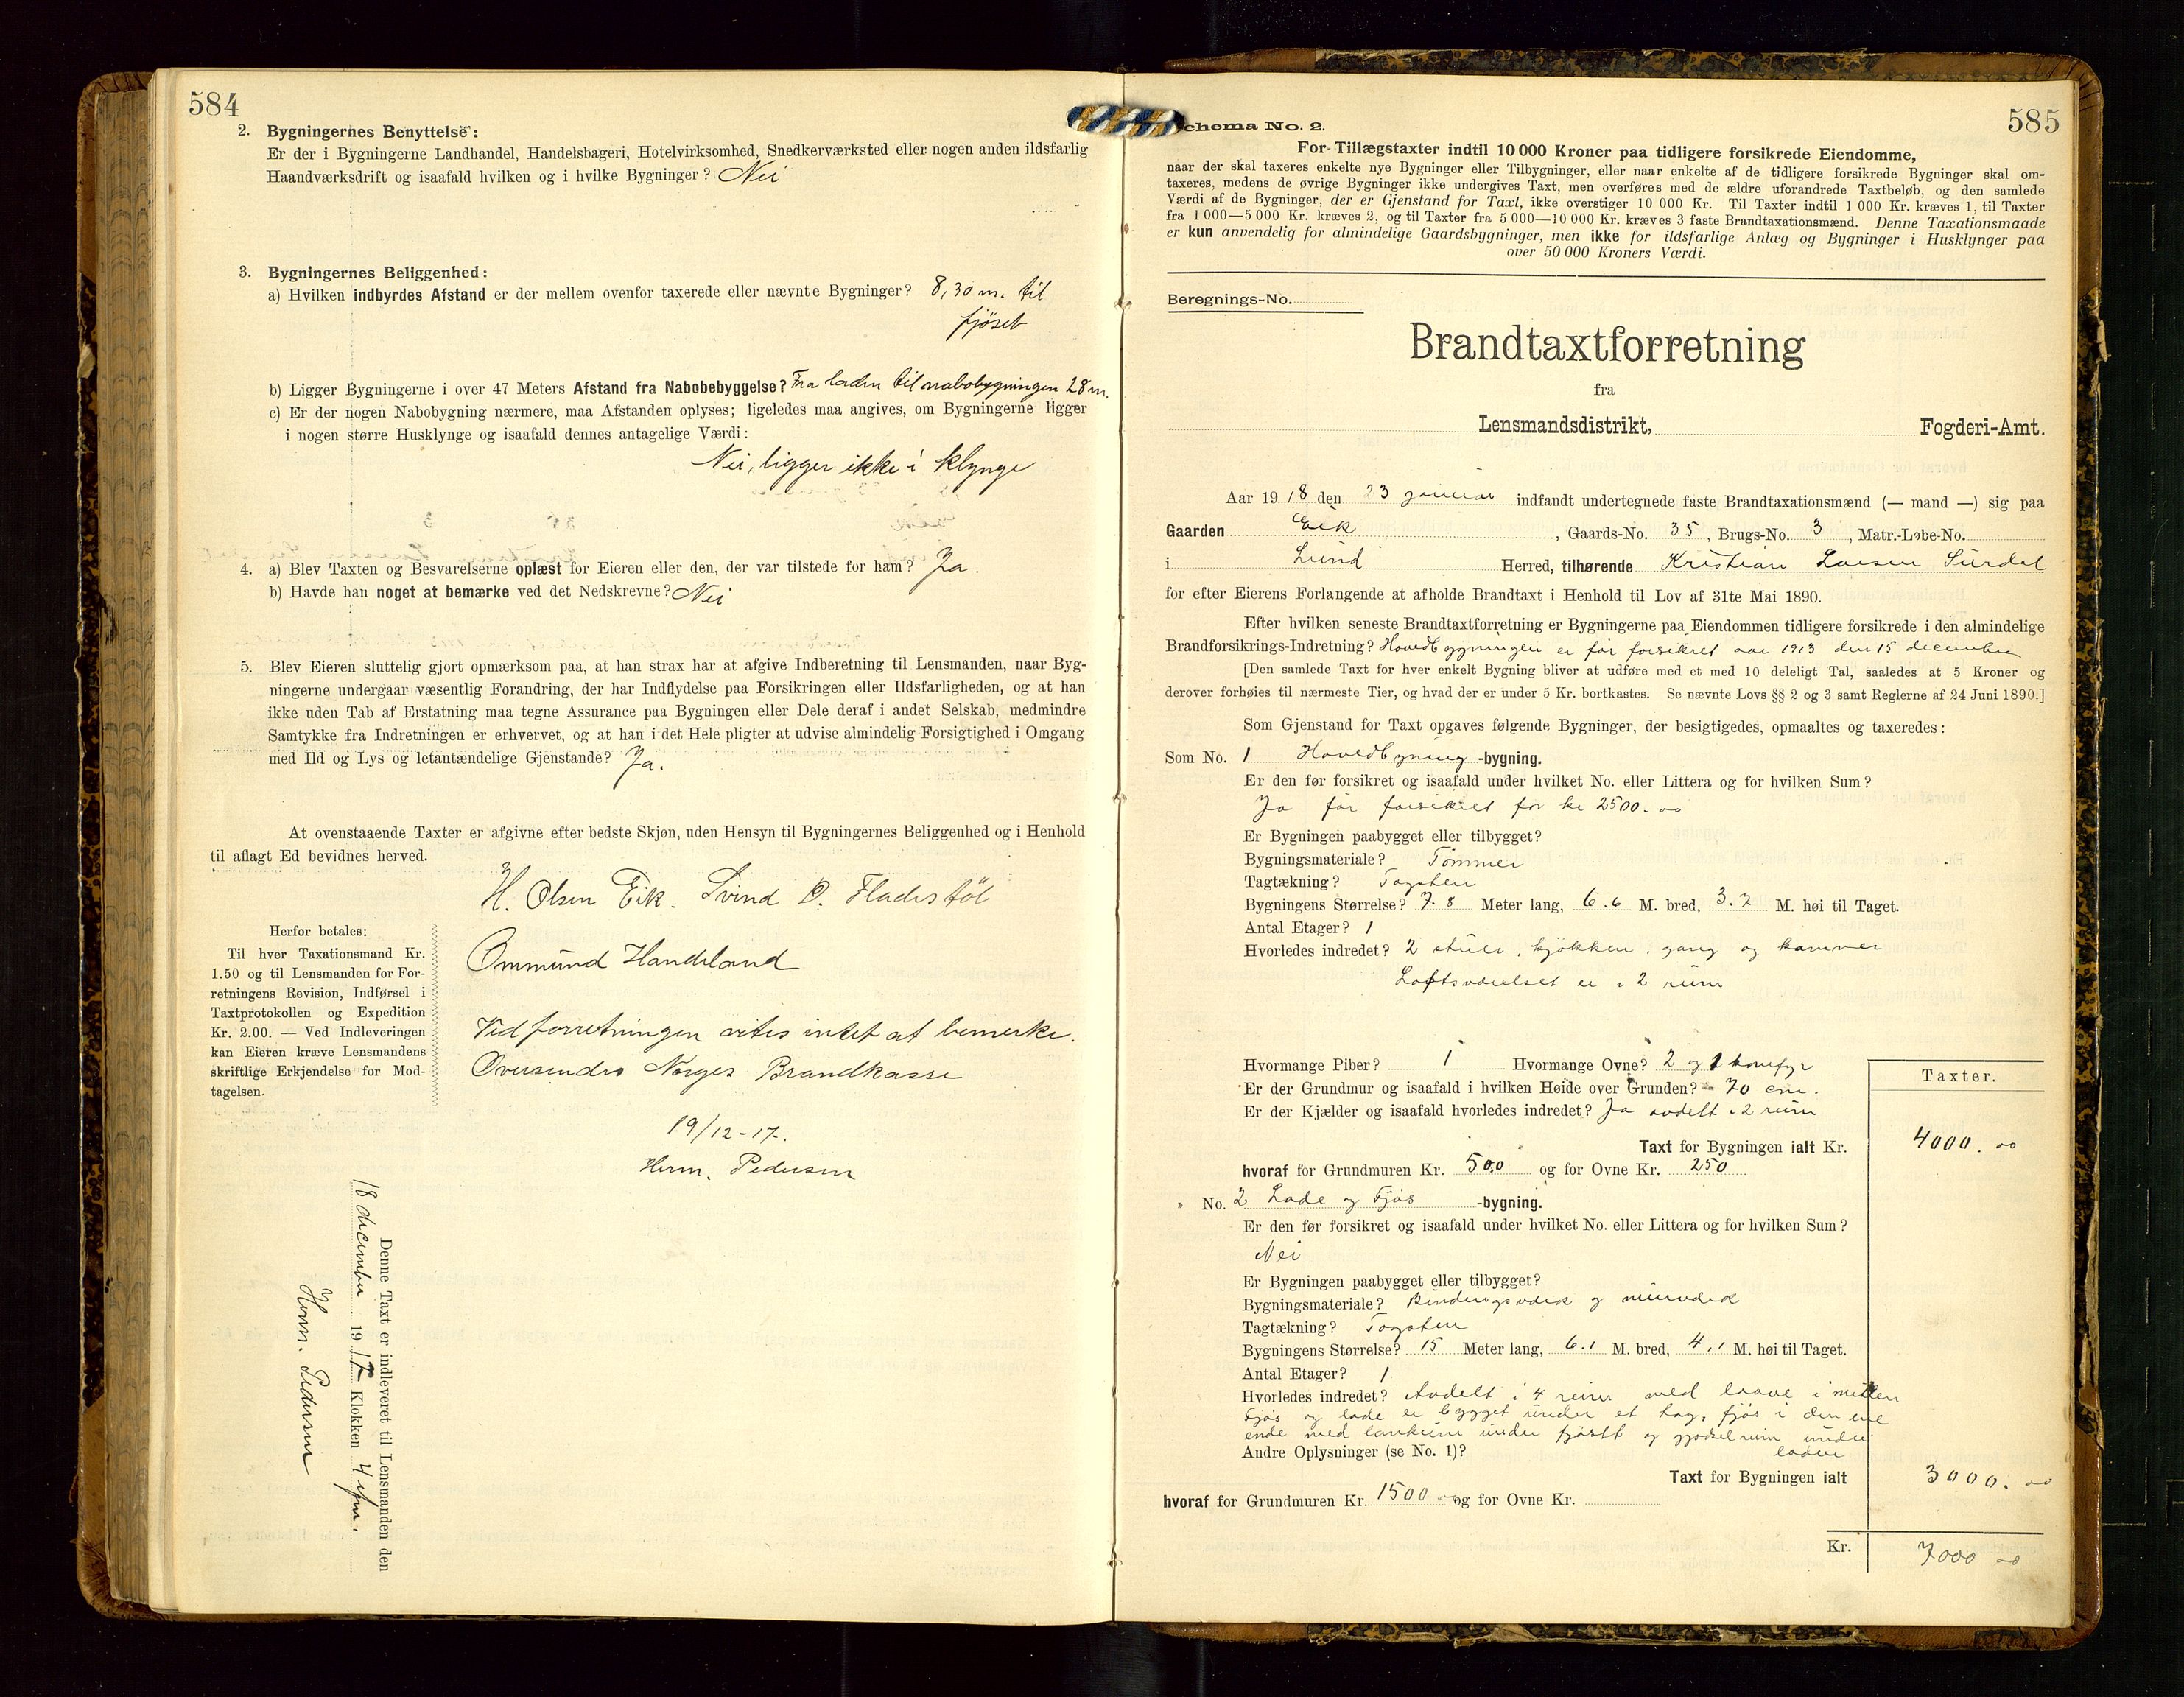 584
2. Bygningernes Benyttelse:
Er der i Bygningerne Landhandel, Handelsbageri, Hotelvirksomhed, Snedkerværksted eller nogen anden ildsfarlig
Haandværksdrift og isaafald hvilken og i hvilke Bygninger? Nei
3. Bygningernes Beliggenhed:
a) Hvilken indbyrdes Afstand er der mellem ovenfor taxerede eller nævnte Bygninger? 8,30 m. til
fjöset
b) Ligger Bygningerne i over 47 Meters Afstand fra Nabobebyggelse? Fra laden til nabobygningen 28 m.
c) Er der nogen Nabobygning nærmere, maa Afstanden oplyses; ligeledes maa angives, om Bygningerne ligger
i nogen større Husklynge og isaafald dennes antagelige Værdi:
Nei, ligger ikke i klynge
4. a) Blev Taxten og Besvarelserne oplæst for Eieren eller den, der var tilstede for ham? Ja.
b) Havde han noget at bemærke ved det Nedskrevne? Nei
5. Blev Eieren sluttelig gjort opmærksom paa, at han strax har at afgive Indberetning til Lensmanden, naar Byg-
ningerne undergaar væsentlig Forandring, der har Indflydelse paa Forsikringen eller Ildsfarligheden, og at han
ikke uden Tab af Erstatning maa tegne Assurance paa Bygningen eller Dele deraf i andet Selskab, medmindre
Samtykke fra Indretningen er erhvervet, og at han i det Hele pligter at udvise almindelig Forsigtighed i Omgang
med Ild og Lys og letantændelige Gjenstande? Ja.
At ovenstaaende Taxter er afgivne efter bedste Skjøn, uden Hensyn til Bygningernes Beliggenhed og i Henhold
til aflagt Ed bevidnes herved.
H. Olsen Eik. Svind O. Fladestöl
Ommund Handeland
Herfor betales:
Til hver Taxationsmand Kr.
1.50 og til Lensmanden for For-
retningens Revision, Indførsel i
Taxtprotokollen og Expedition
Kr. 2.00. — Ved Indleveringen
kan Eieren kræve Lensmandens
skriftlige Erkjendelse for Mod-
tagelsen.
Ved forretningen vites intet at bemerke.
Oversendes Norges Brandkasse
19/12-17.
Herm. Pedersen
Denne Taxt er indleveret til Lensmanden den
18 december 1917 Klokken 4 efm.
Herm. Pedersen
585
Schema No. 2.
For Tillægstaxter indtil 10 000 Kroner paa tidligere forsikrede Eiendomme,
naar der skal taxeres enkelte nye Bygninger eller Tilbygninger, eller naar enkelte af de tidligere forsikrede Bygninger skal om-
taxeres, medens de øvrige Bygninger ikke undergives Taxt, men overføres med de ældre uforandrede Taxtbeløb, og den samlede
Værdi af de Bygninger, der er Gjenstand for Taxt, ikke overstiger 10 000 Kr. Til Taxter indtil 1 000 Kr. kræves 1, til Taxter
fra 1 000—5 000 Kr. kræves 2, og til Taxter fra 5 000—10 000 Kr. kræves 3 faste Brandtaxationsmænd. Denne Taxationsmaade
er kun anvendelig for almindelige Gaardsbygninger, men ikke for ildsfarlige Anlæg og Bygninger i Husklynger paa
over 50 000 Kroners Værdi.
Beregnings-No.
Brandtaxtforretning
fra
Lensmandsdistrikt, Fogderi-Amt.
Aar 1918 den 23 januar indfandt undertegnede faste Brandtaxationsmænd (— mand —) sig paa
Gaarden Eik, Gaards-No. 35, Brugs-No. 3, Matr.-Løbe-No.
i Lund Herred, tilhørende Kristian Larsen Surdal
for efter Eierens Forlangende at afholde Brandtaxt i Henhold til Lov af 31te Mai 1890.
Efter hvilken seneste Brandtaxtforretning er Bygningerne paa Eiendommen tidligere forsikrede i den almindelige
Brandforsikrings-Indretning? Hovedbygningen er før forsikret aar 1913 den 15 december
[Den samlede Taxt for hver enkelt Bygning bliver at udføre med et med 10 deleligt Tal, saaledes at 5 Kroner og
derover forhøies til nærmeste Tier, og hvad der er under 5 Kr. bortkastes. Se nævnte Lovs §§ 2 og 3 samt Reglerne af 24 Juni 1890.]
Som Gjenstand for Taxt opgaves følgende Bygninger, der besigtigedes, opmaaltes og taxeredes:
Som No. 1 Hovedbygning -bygning.
Er den før forsikret og isaafald under hvilket No. eller Littera og for hvilken Sum?
Ja før forsikret for kr 2500.00
Er Bygningen paabygget eller tilbygget?
Bygningsmateriale? Tømmer
Tagtækning? Tagsten
Bygningens Størrelse? 7.8 Meter lang, 6.6 M. bred, 3.7 M. høi til Taget.
Antal Etager? 1
Hvorledes indredet? 2 stuer, kjøkken, gang og kammer
Loftsværelset er i 2 rum
Hvormange Piber? 1 Hvormange Ovne? 2 og 1 komfyr
Er der Grundmur og isaafald i hvilken Høide over Grunden? 70 cm.
Er der Kjælder og isaafald hvorledes indredet? Ja avdelt i 2 rum
Taxter.
Taxt for Bygningen ialt Kr. 4000.00
hvoraf for Grundmuren Kr. 500 og for Ovne Kr. 250
» No. 2 Lade og Fjøs -bygning.
Er den før forsikret og isaafald under hvilket No. eller Littera og for hvilken Sum?
Nei
Er Bygningen paabygget eller tilbygget?
Bygningsmateriale? Bindingsverk og murverk
Tagtækning? Tagsten
Bygningens Størrelse? 15 Meter lang, 6.1 M. bred, 4,1 M. høi til Taget.
Antal Etager? 1
Hvorledes indredet? Avdelt i 4 reim med laave i mitten
Fjøs og lade er bygget under et tag, fjøs i den ene
ende med lankum under fjøset og gjødselrum under
Andre Oplysninger (se No. 1)? laden
Taxt for Bygningen ialt 3000.00
hvoraf for Grundmuren Kr. 1500 og for Ovne Kr.
Kr. 7000 00